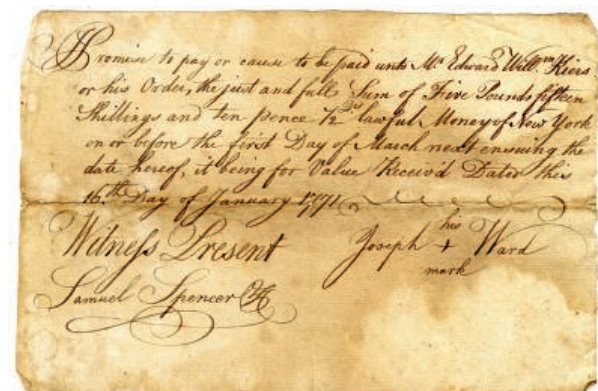 I Promise to pay or cause to be paid unto Mr. Edward Willm. Kiers
or his Order, the just and full Sum of Five Pounds fifteen
Shillings and ten pence 1/2 lawful Money of New York
on or before the first Day of March next ensuing the
date hereof, it being for Value Receiv'd Dated this
16.th Day of January 1771
Witness Present
Joseph his + mark Ward
Samuel Spencer